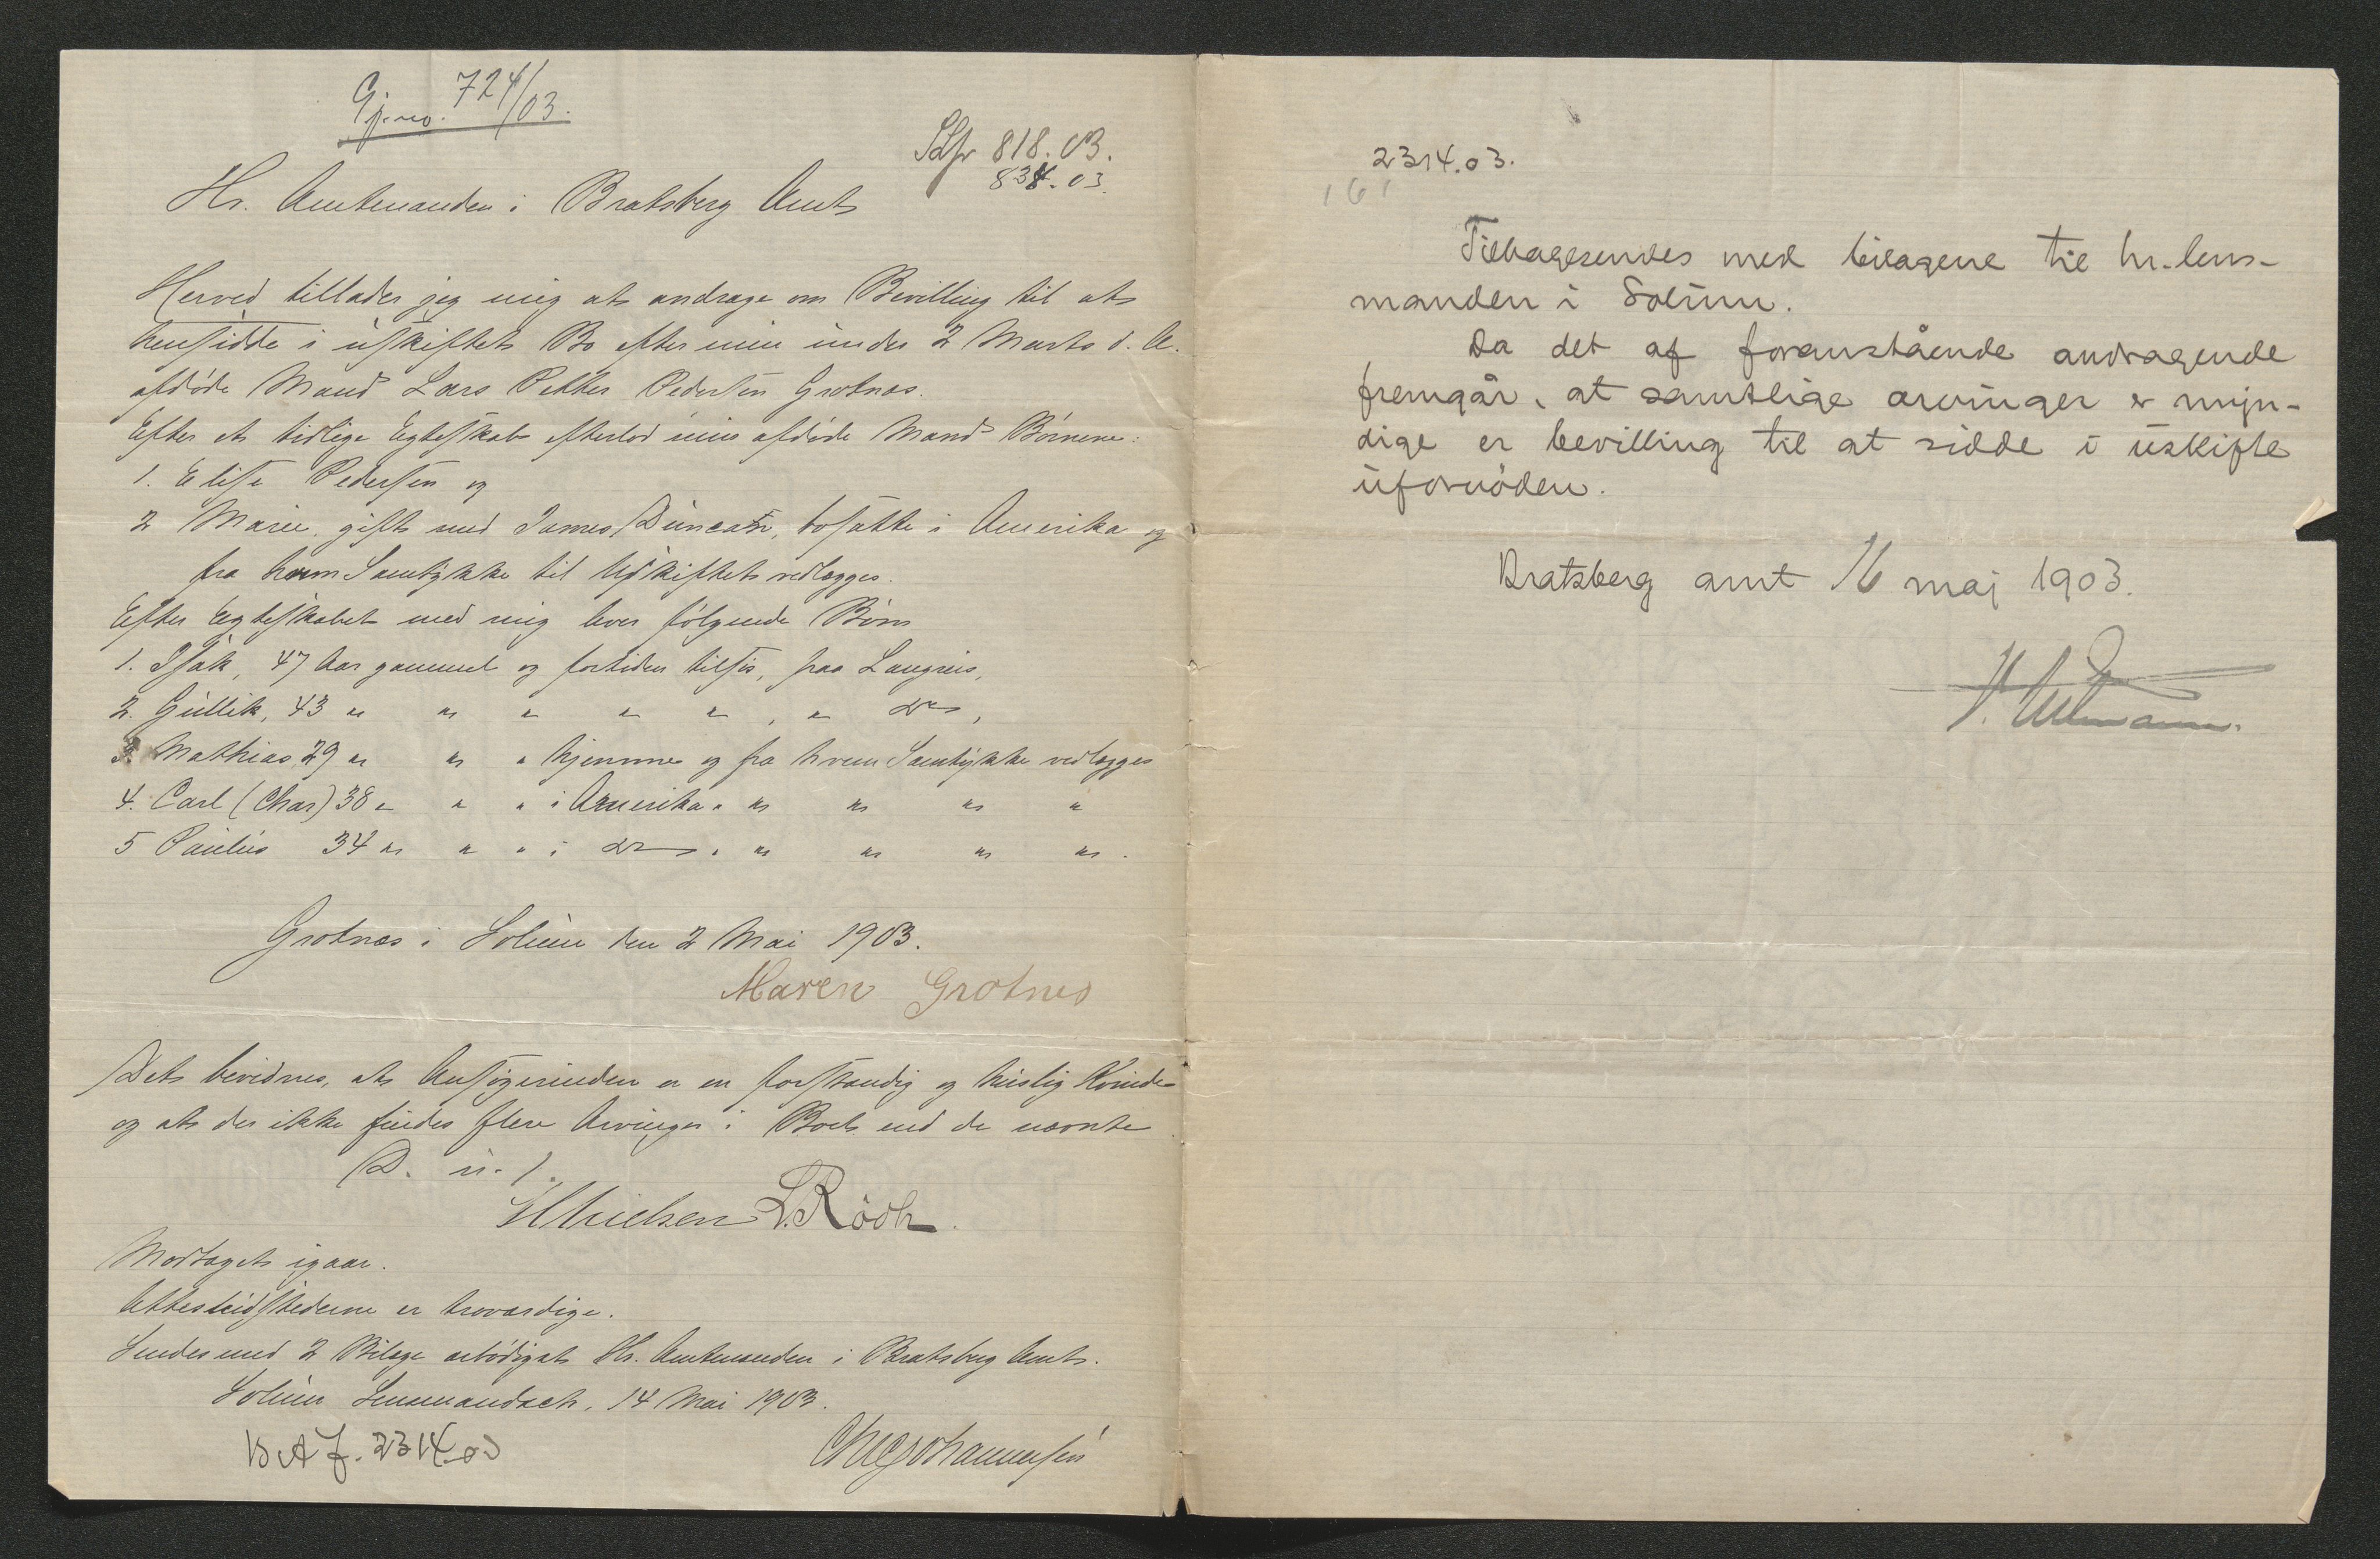 Gj.no. 724/03.
Skfr 818.03.
834.03.
Hr. Amtmanden i Bratsberg Amt
Herved tillader jeg mig at andrage om Bevilling til at
hensidde i uskiftet Bo efter min under 2 Marts d. A.
afdøde Mand Lars Petter Pedersen Grotnæs.
Efter et tidlige Egteskab efterlod min afdøde Mand Børnene:
1. Elise Pedersen og
2 Marie, gift med James Duncan, bosatte i Amerika og
fra hvem Samtykke til Uskiftet vedlægges.
Efter Egteskabet med mig lever følgende Børn
1. Isak, 47 Aar gammel og fortiden tilsjøs, paa Langreis,
2. Gullik, 43 " " " " " , " do ,
3. Mathias, 29 " " " hjemme og fra hvem Samtykke vedlægges
4. Carl (Chas) 38 " " " i Amerika " " " " "
5 Paulus 34 " " " i do " " " " ".
Grotnæs i Solum den 2 Mai 1903.
Maren Grotnes
Det bevidnes, at Ansøgerinden er en forstandig og huslig Kvinde
og at der ikke findes flere Arvinger i Boet end de nævnte
D. u. s.
Nielsen L. Rööh.
Modtaget igaar.
Attestudstederne er troværdige.
Sendes med 2 Bilage ærbødigst Hr. Amtmanden i Bratsberg Amt.
Solum Lensmandset, 14 Mai 1903.
B A J. 2314.03
Johannesen
2314.03.
161
Tilbagesendes med bilagene til hr. lens-
manden i Solum.
Da det af foranstående andragende
fremgår, at samtlige arvinger er myn-
dige er bevilling til at sidde i uskifte
ufornöden.
Bratsberg amt 16 maj 1903.
V. Ullmann.